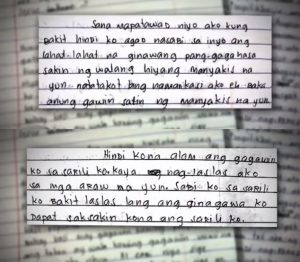 Sana mapatawad niyo ako kung
bakit hindi ko agad nasabi sa inyo ang
lahat-lahat na ginawang pang-gagahasa
sakin ng walang hiyang manyakis na
yun. natatakot lang naman kasi ako eh baka
anung gawin sakin ng manyakis na yun.
Hindi kona alam ang gagawin
ko sa sarili ko. kaya nag-laslas ako
sa mga araw na yun. Sabi ko sa sarili
ko bakit laslas lang ang ginagawa ko
Dapat saksakin kona ang sarili ko.